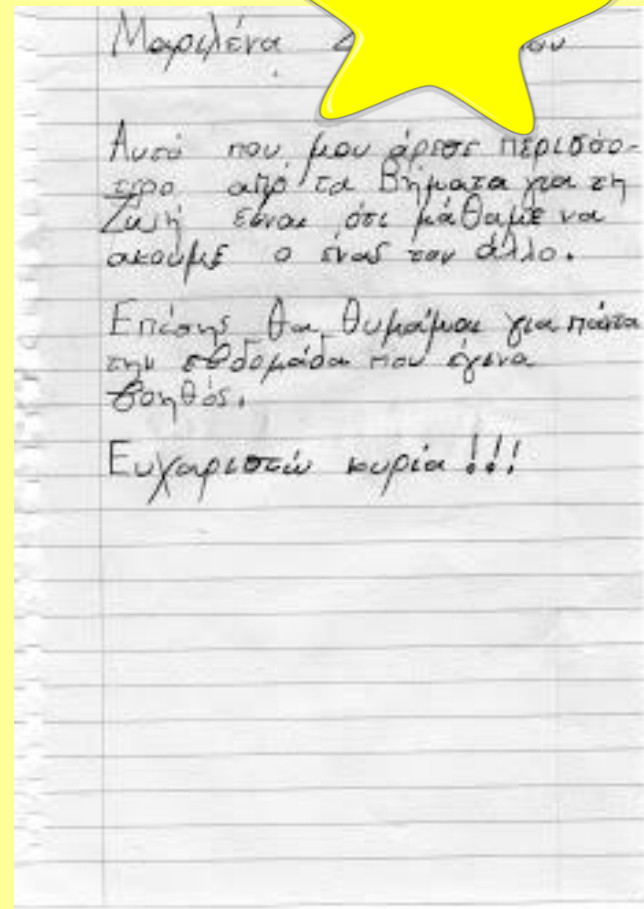 Μαριλένα
Αυτό που μου άρεσε περισσό-
τερο από τα Βήματα για τη
Ζωή είναι ότι μάθαμε να
ακούμε ο ένας τον άλλο.
Επίσης θα θυμάμαι για πάντα
την εβδομάδα που έγινα
βοηθός.
Ευχαριστώ κυρία !!!